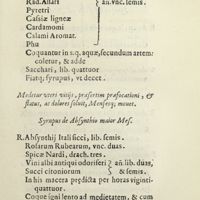 Rad. Assari
Pyretri
Cassiæ ligneæ
Cardamomi
Calami Aromat.
Phu
} añ. vnc. semis.
Coquantur in s.q. aquæ, secundum artem:
coletur, & adde
Sacchari, lib. quattuor
Fiat q; syrupus, vt decet.
Medetur vteri vitijs, præsertim præfocationi, &
flatus, ac dolores soluit, Mensesq; mouet.
Syrupus de Absynthio maior Mes.
R. Absynthij Italisicci, lib. semis.
Rosarum Rubearum, vnc. duas.
Spicæ Nardi, drach. tres.
Vini albi antiqui odoriferi } añ. lib. duas,
Succi citoniorum } & semis.
In his macera prędicta per horas viginti-
quattuor.
Coque igni lento ad medietatem, & cum